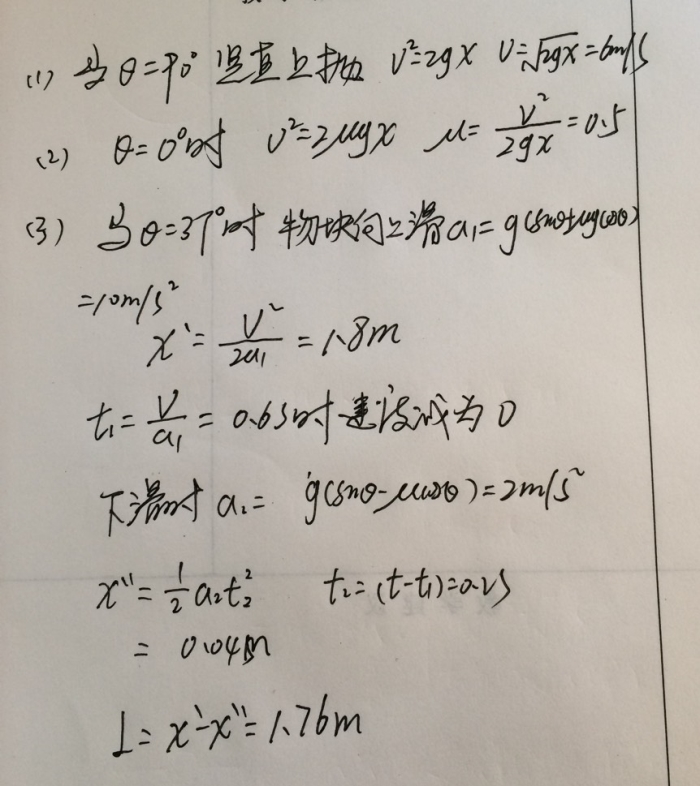 (1) 当θ=90° 竖直上抛 v²=2gx v=√2gx=6m/s
(2) θ=0°时 v²=2μgx μ=v²/2gx=0.5
(3) 当θ=37°时 物块向上滑a₁=g(sinθ+μgcosθ)
=10m/s²
x'=v²/2a₁=1.8m
t₁=v/a₁=0.6s时 速度减为0
下滑时 a₂= g(sinθ-μcosθ)=2m/s²
x''=1/2a₂t₂² t₂=(t-t₁)=0.2s
= 0.04m
L=x'-x''=1.76m